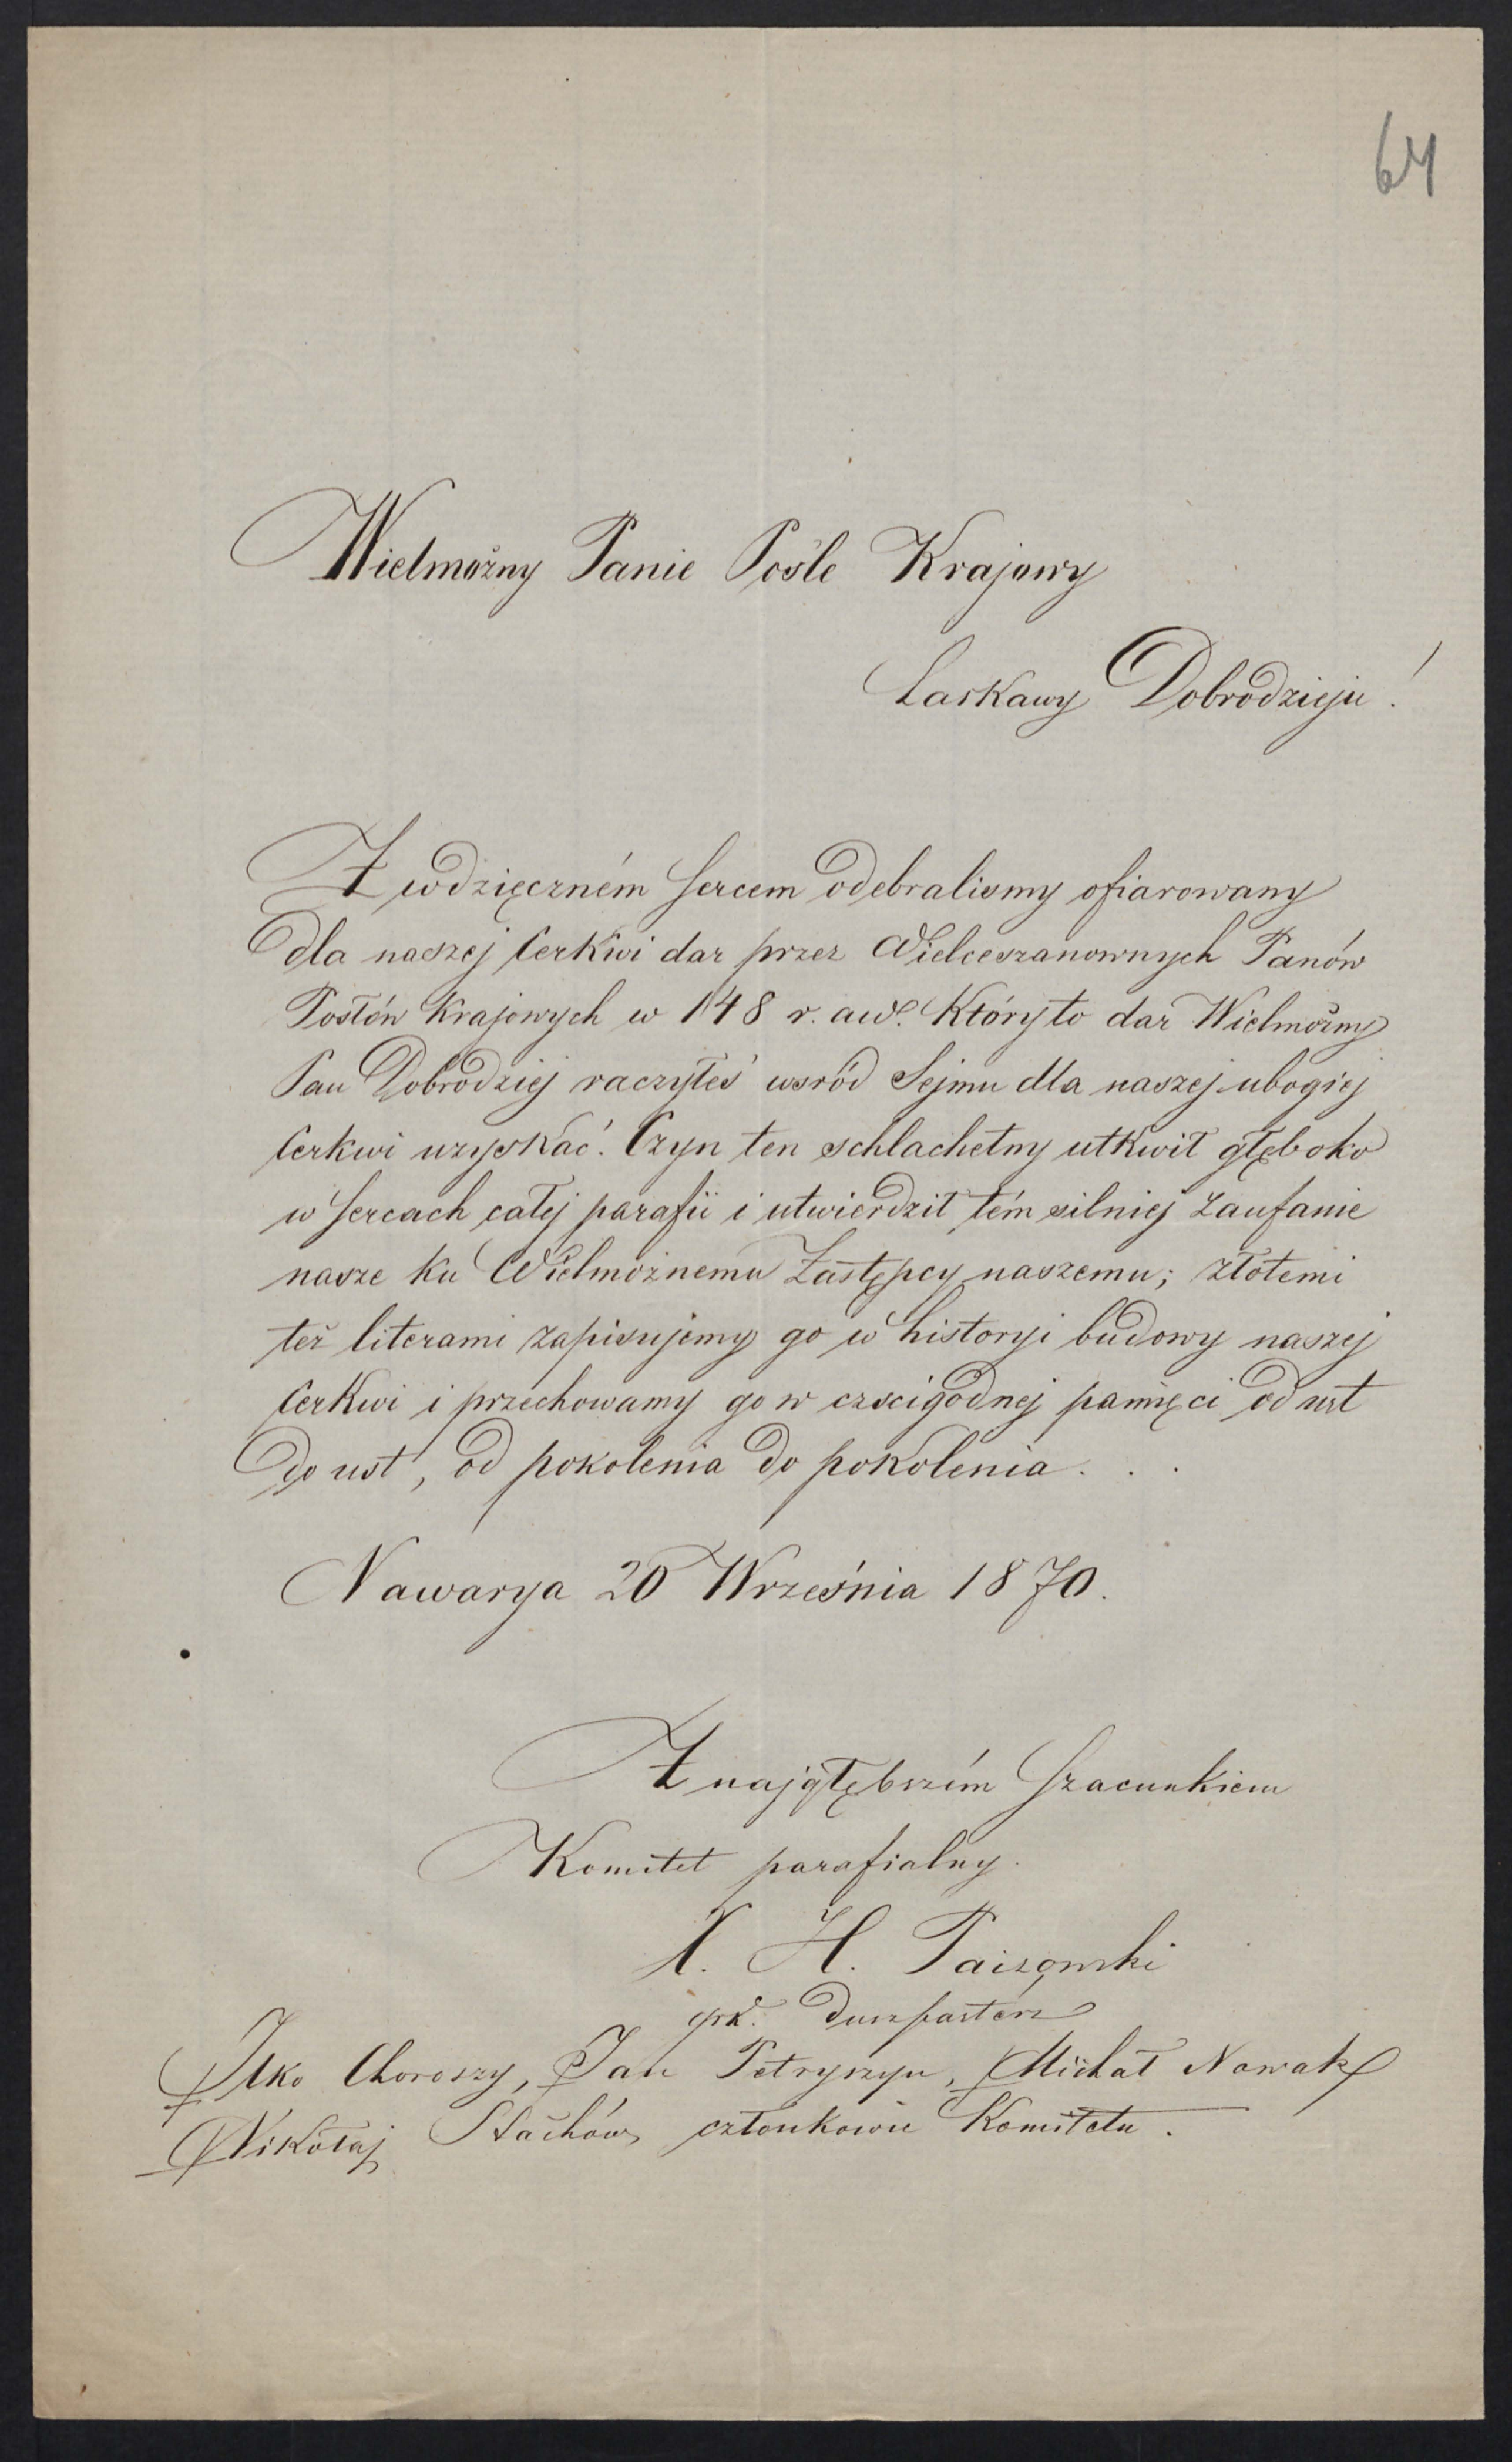 64
Wielmożny Panie Pośle Krajowy
Łaskawy Dobrodzieju!
Z wdzięczném sercem odebralismy ofiarowany
dla naszej Cerkwi dar przez Wielceszanownych Panów
Posłów Krajowych w 148 r. aw. Któryto dar Wielmożny
Pan Dobrodziej raczyłeś wsród Sejmu dla naszej ubogiej
Cerkwi uzyskać. Czyn ten schlachetny utkwił głęboko
w sercach całej parafii i utwierdził tém silniej zaufanie
nasze ku Wielmożnemu Zastępcy naszemu; złotemi
też literami zapisujemy go w historyi budowy naszej
Cerkwi i przechowamy go w czscigodnej pamięci od ust
do ust, od pokolenia do pokolenia . . .
Nawarya 20 Września 1870.
Z najgłębszém szacunkiem
Komitet parafialny.
X. H.
grk. Duszpasterz
Ilko Choroszy, Jan Petryszyn, Michał Nowak
Mikołaj Stachów członkowie Komitetu.